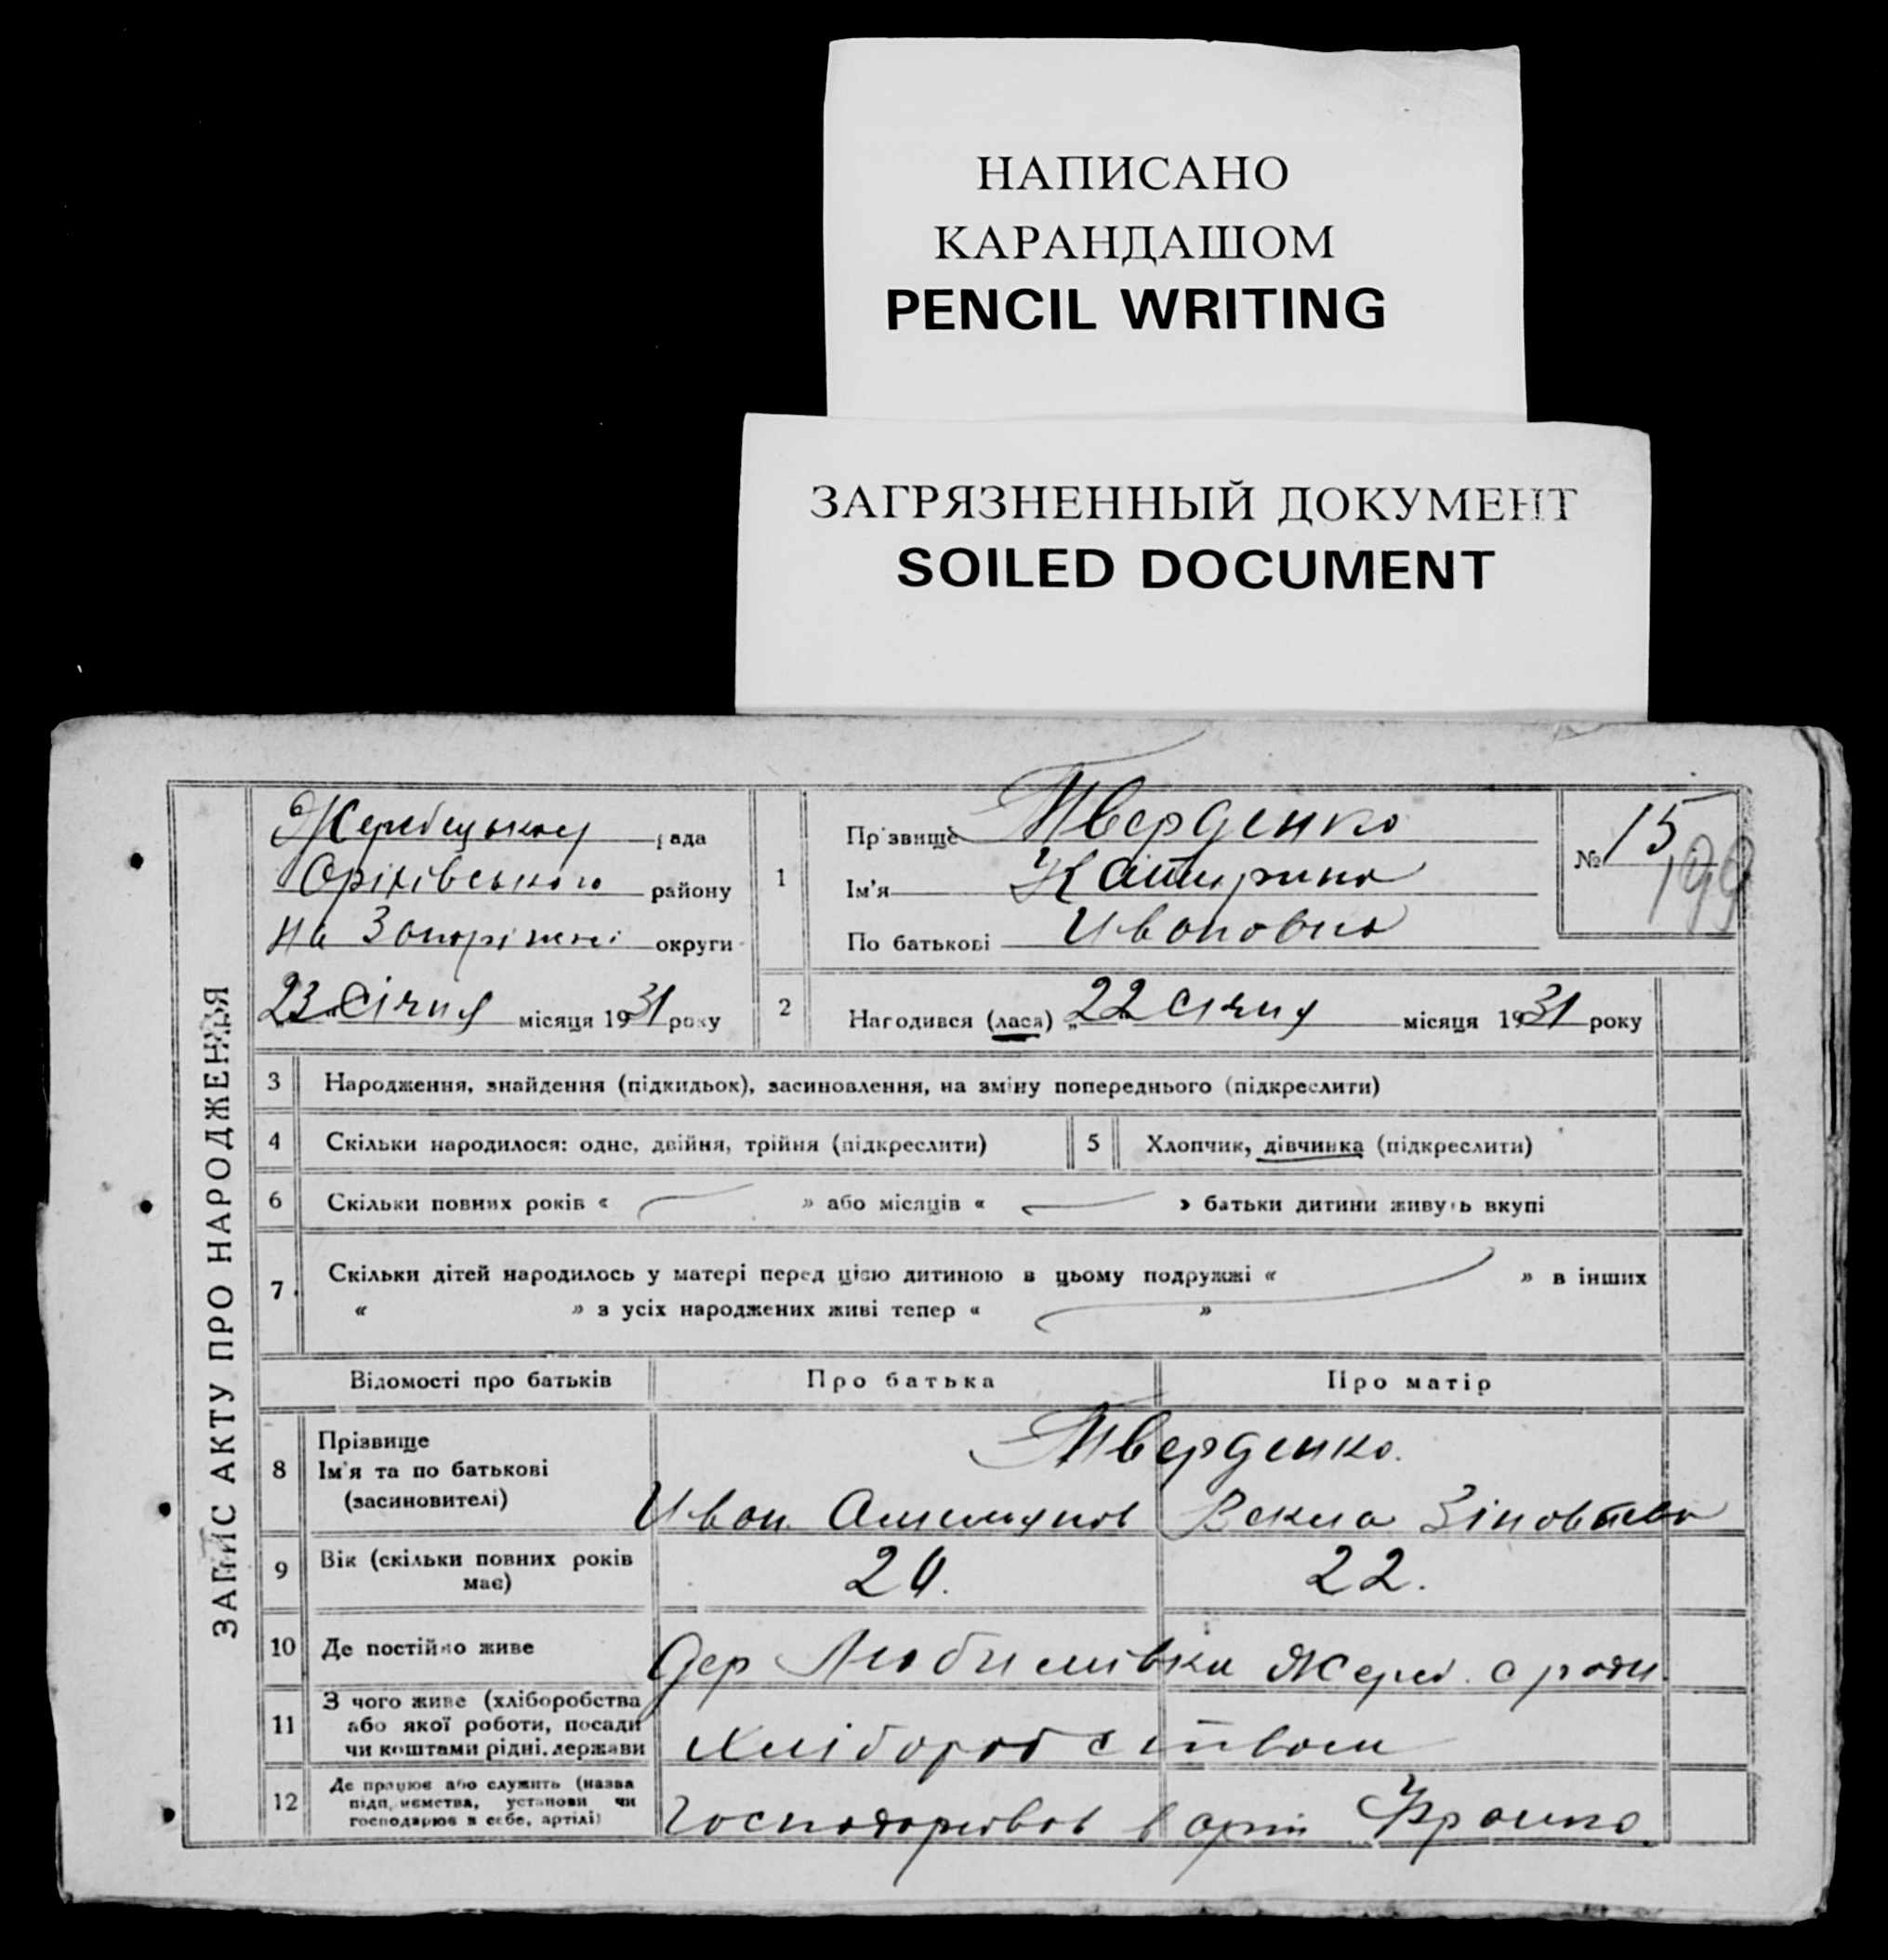 НАПИСАНО
КАРАНДАШОМ
PENCIL WRITING
ЗАГРЯЗНЕННЫЙ ДОКУМЕНТ
SOILED DOCUMENT
ЗАПИС АКТУ ПРО НАРОДЖЕННЯ
рада
Оріхівського району
на Запоріжжі округи
23 січня місяця 1931 року
1
Прізвище Тверденко
Ім'я Катирина
По батькові Ивановна
№ 15
199
2 Народився (лася) „22 січня місяця 1931 року
3 Народження, знайдення (підкидьок), засиновлення, на зміну попереднього (підкреслити)
4 Скільки народилося: одне, двійня, трійня (підкреслити) 5 Хлопчик, дівчинка (підкреслити)
6 Скільки повних років « » або місяців « » батьки дитини живуть вкупі
7 Скільки дітей народилось у матері перед цією дитиною в цьому подружжі « » в інших
« » з усіх народжених живі тепер « »
Відомості про батьків Про батька Про матір
8 Прізвище
Ім'я та по батькові
(засиновителі)
Тверденко.
Иван Зіновтева
9 Вік (скільки повних років
має)
24. 22.
10 Де постійно живе дер Любимівка Жереб. с ради.
11 З чого живе (хліборобства
або якої роботи, посади
чи коштами рідні, держави
Хліборобством
12 Де працює або служить (назва
підприємства, установи чи
господарює в себе, артілі)
в арт Франко